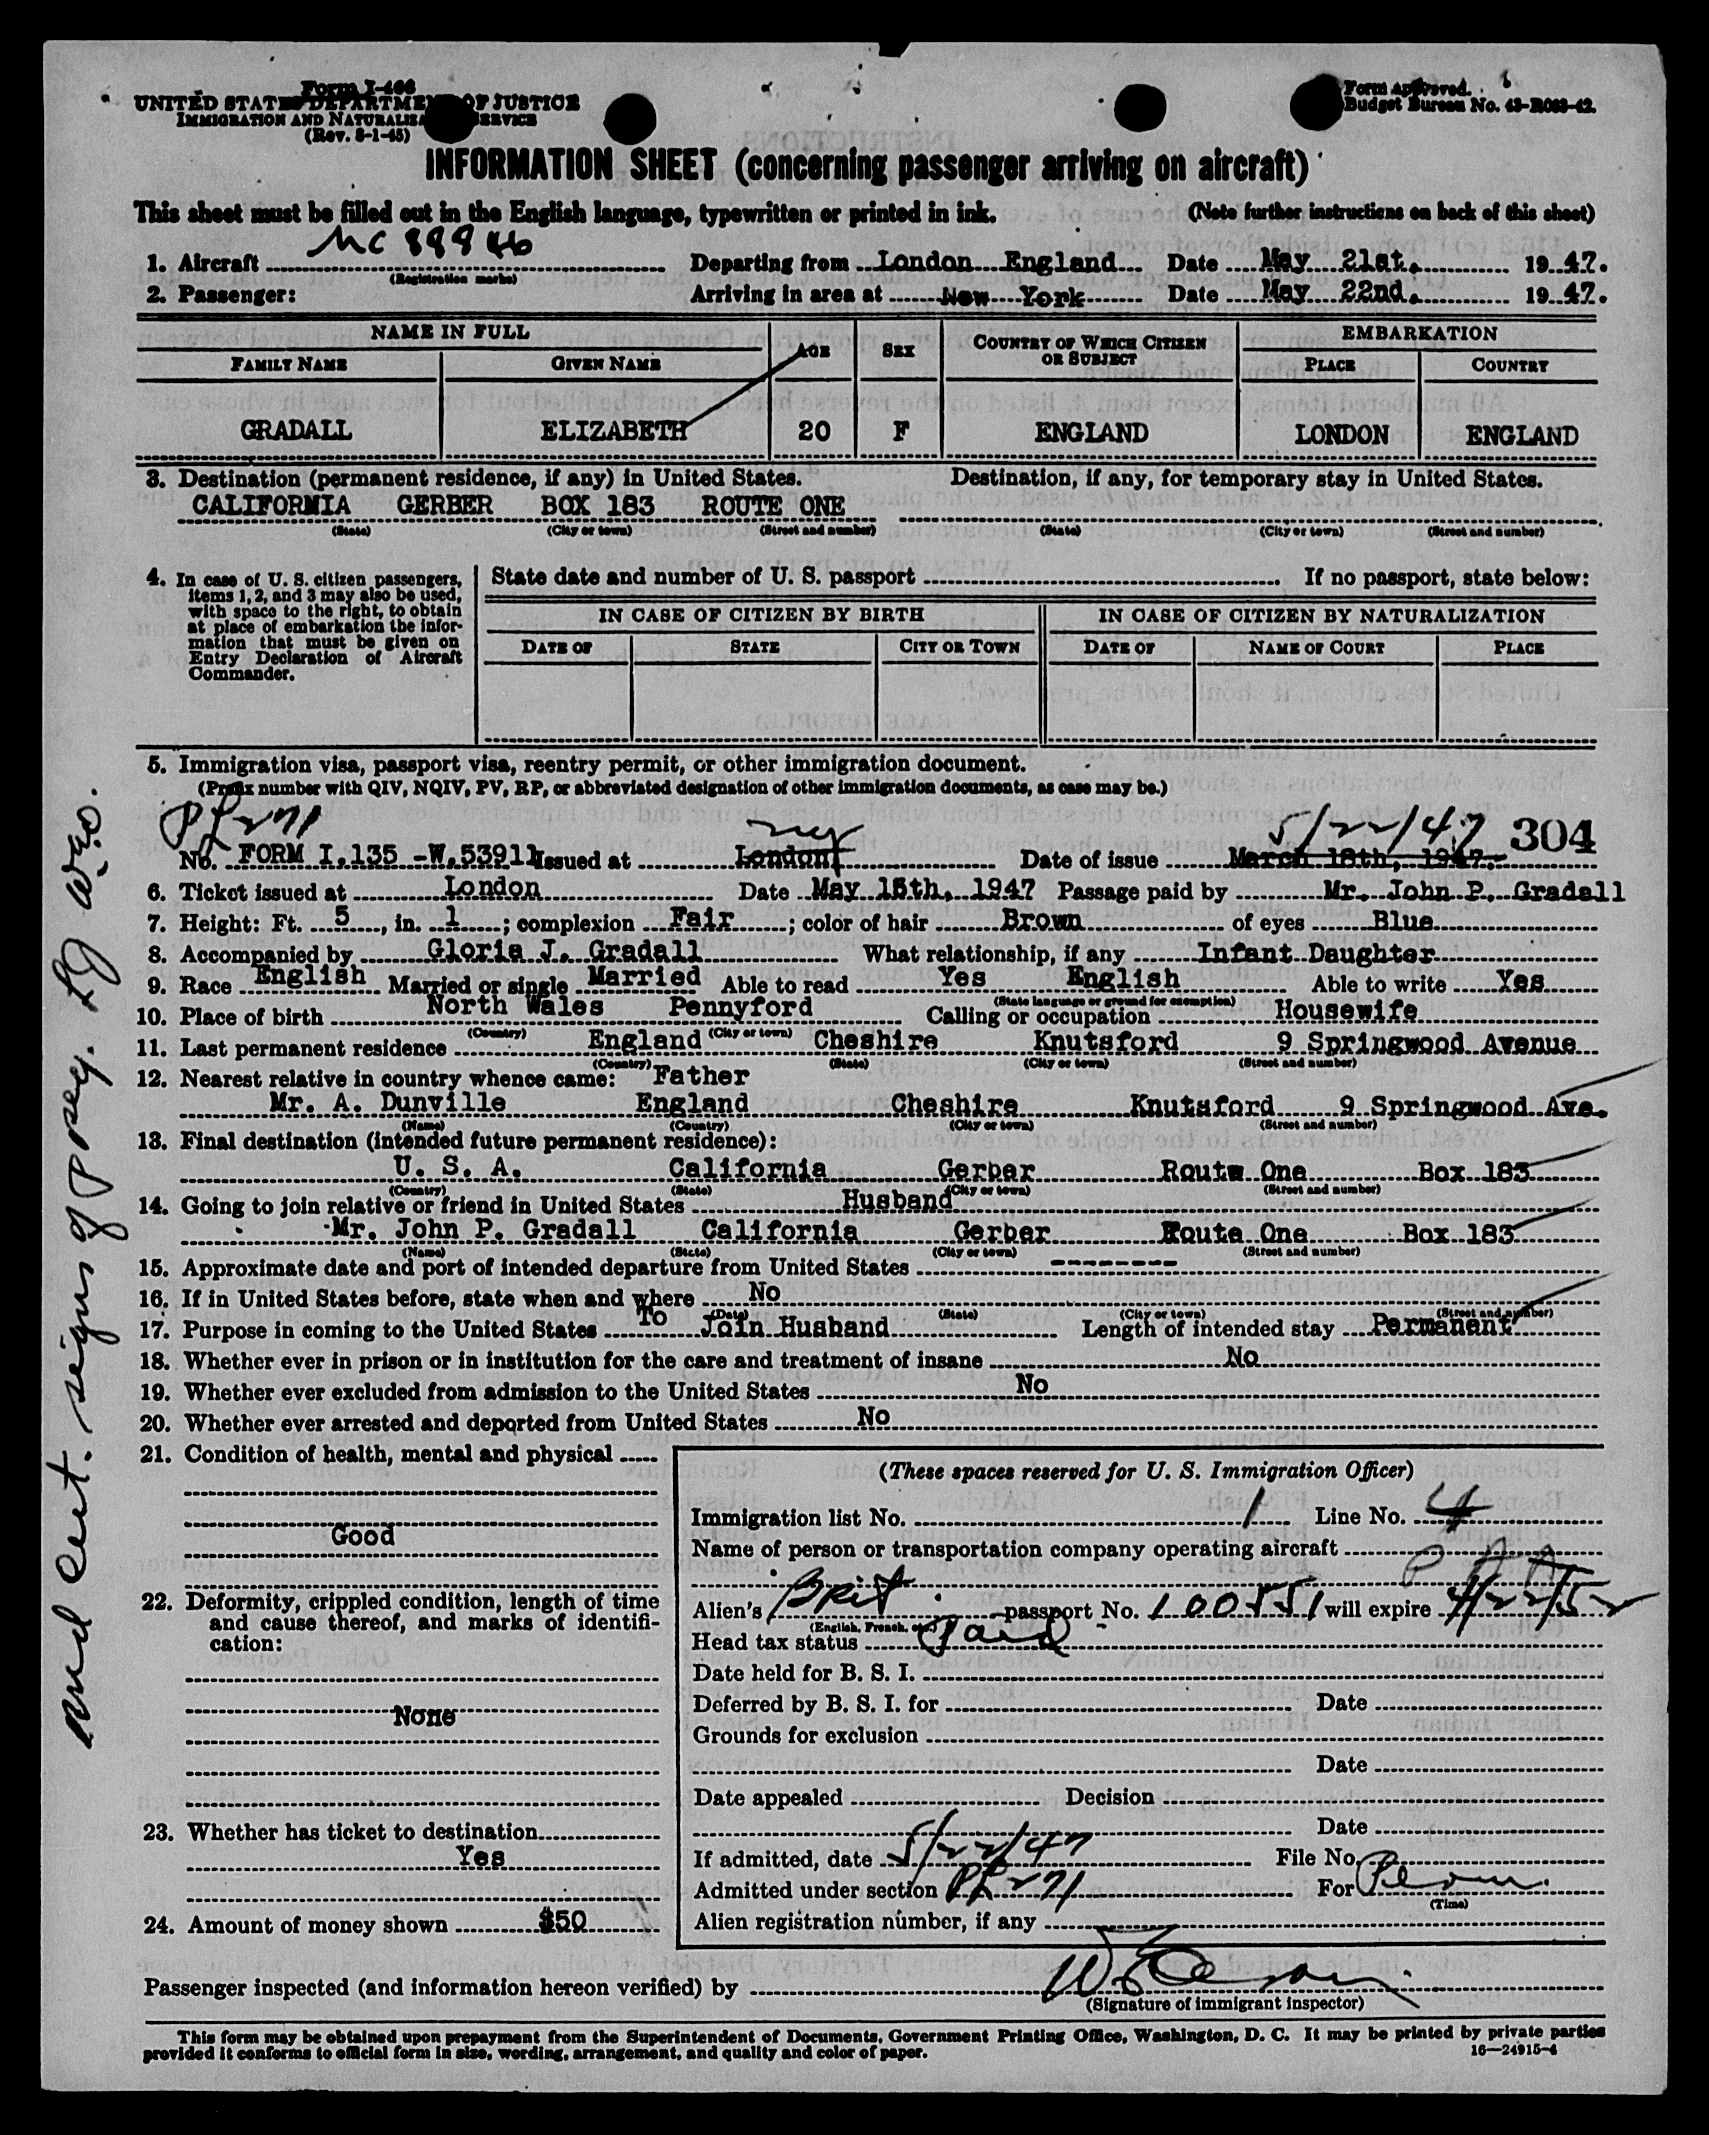 Form I-466
UNITED STATES DEPARTMENT OF JUSTICE
IMMIGRATION AND NATURALIZATION SERVICE
(Rev. 8-1-45)
Form Approved.
Budget Bureau No. 43-R083-42.
INFORMATION SHEET (concerning passenger arriving on aircraft)
This sheet must be filled out in the English language, typewritten or printed in ink. (Note further instructions on back of this sheet)
1. Aircraft NC 88846 Departing from London England Date May 21st, 1947.
(Registration marks)
2. Passenger: Arriving in area at New York Date May 22nd, 1947.
NAME IN FULL AGE SEX COUNTRY OF WHICH CITIZEN OR SUBJECT EMBARKATION
FAMILY NAME GIVEN NAME PLACE COUNTRY
GRADALL ELIZABETH 20 F ENGLAND LONDON ENGLAND
3. Destination (permanent residence, if any) in United States. Destination, if any, for temporary stay in United States.
CALIFORMIA GERBER BOX 183 ROUTE ONE
(State) (City or town) (Street and number) (State) (City or town) (Street and number)
4. In case of U. S. citizen passengers,
items 1, 2, and 3 may also be used,
with space to the right, to obtain
at place of embarkation the infor-
mation that must be given on
Entry Declaration of Aircraft
Commander.
State date and number of U. S. passport If no passport, state below:
IN CASE OF CITIZEN BY BIRTH IN CASE OF CITIZEN BY NATURALIZATION
DATE OF STATE CITY OR TOWN DATE OF NAME OF COURT PLACE
5. Immigration visa, passport visa, reentry permit, or other immigration document.
(Prefix number with QIV, NQIV, PV, RP, or abbreviated designation of other immigration documents, as case may be.)
PL 271 NY 5/22/47 304
No. FORM I.135 -W.53911 Issued at London Date of issue March 18th, 1947.
6. Ticket issued at London Date May 15th, 1947 Passage paid by Mr. John P. Gradall
7. Height: Ft. 5, in. 1; complexion Fair; color of hair Brown of eyes Blue
8. Accompanied by Gloria J. Gradall What relationship, if any Infant Daughter
9. Race English Married or single Married Able to read Yes English Able to write Yes
(State language or ground for exemption)
10. Place of birth North Wales Pennyford Calling or occupation Housewife
(Country) (City or town)
11. Last permanent residence England Cheshire Knutsford 9 Springwood Avenue
(Country) (State) (City or town) (Street and number)
12. Nearest relative in country whence came: Father
Mr. A. Dunville England Cheshire Knutsford 9 Springwood Ave.
(Name) (Country) (City or town) (Street and number)
13. Final destination (intended future permanent residence):
U. S. A. California Gerber Route One Box 183
(Country) (State) (City or town) (Street and number)
14. Going to join relative or friend in United States Husband
Mr. John P. Gradall California Gerber Route One Box 183
(Name) (State) (City or town) (Street and number)
15. Approximate date and port of intended departure from United States --------
16. If in United States before, state when and where No
(Date) (State) (City or town) (Street and number)
17. Purpose in coming to the United States To Join Husband Length of intended stay Permanent
18. Whether ever in prison or in institution for the care and treatment of insane No
19. Whether ever excluded from admission to the United States No
20. Whether ever arrested and deported from United States No
21. Condition of health, mental and physical
Good
22. Deformity, crippled condition, length of time
and cause thereof, and marks of identifi-
cation:
None
23. Whether has ticket to destination
Yes
24. Amount of money shown $50
(These spaces reserved for U. S. Immigration Officer)
Immigration list No. 1 Line No. 4
Name of person or transportation company operating aircraft
P A A
Alien's Brit passport No. 100551 will expire 4/22/52
(English, French, etc.)
Head tax status Paid
Date held for B. S. I.
Deferred by B. S. I. for Date
Grounds for exclusion
Date
Date appealed Decision
Date
If admitted, date 5/22/47 File No.
Admitted under section PL 271 For Perm.
(Time)
Alien registration number, if any
Passenger inspected (and information hereon verified) by
(Signature of immigrant inspector)
This form may be obtained upon prepayment from the Superintendent of Documents, Government Printing Office, Washington, D. C. It may be printed by private parties
provided it conforms to official form in size, wording, arrangement, and quality and color of paper. 16—24915-4
Med Cert. signs of preg.